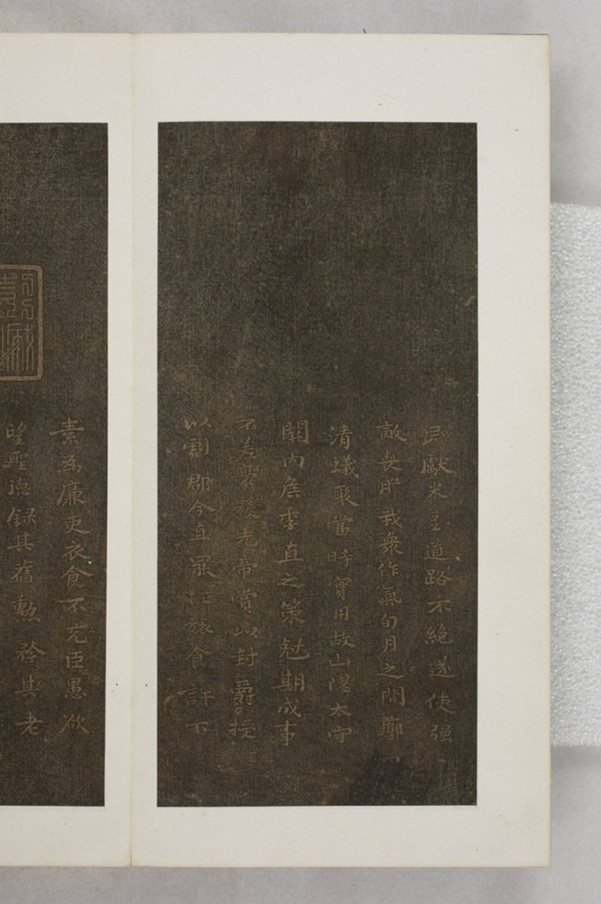 民獻米豆道路不絶遂使强
敵喪膽我衆作氣旬月之間廓
清蟻聚當時實用故山陽太守
關内侯季直之策尅期成事
不差豪髮先帝賞以封爵授
以劇郡今直罷任旅食許下
素為廉吏衣食不充臣愚欲
望聖德録其舊勲矜其老